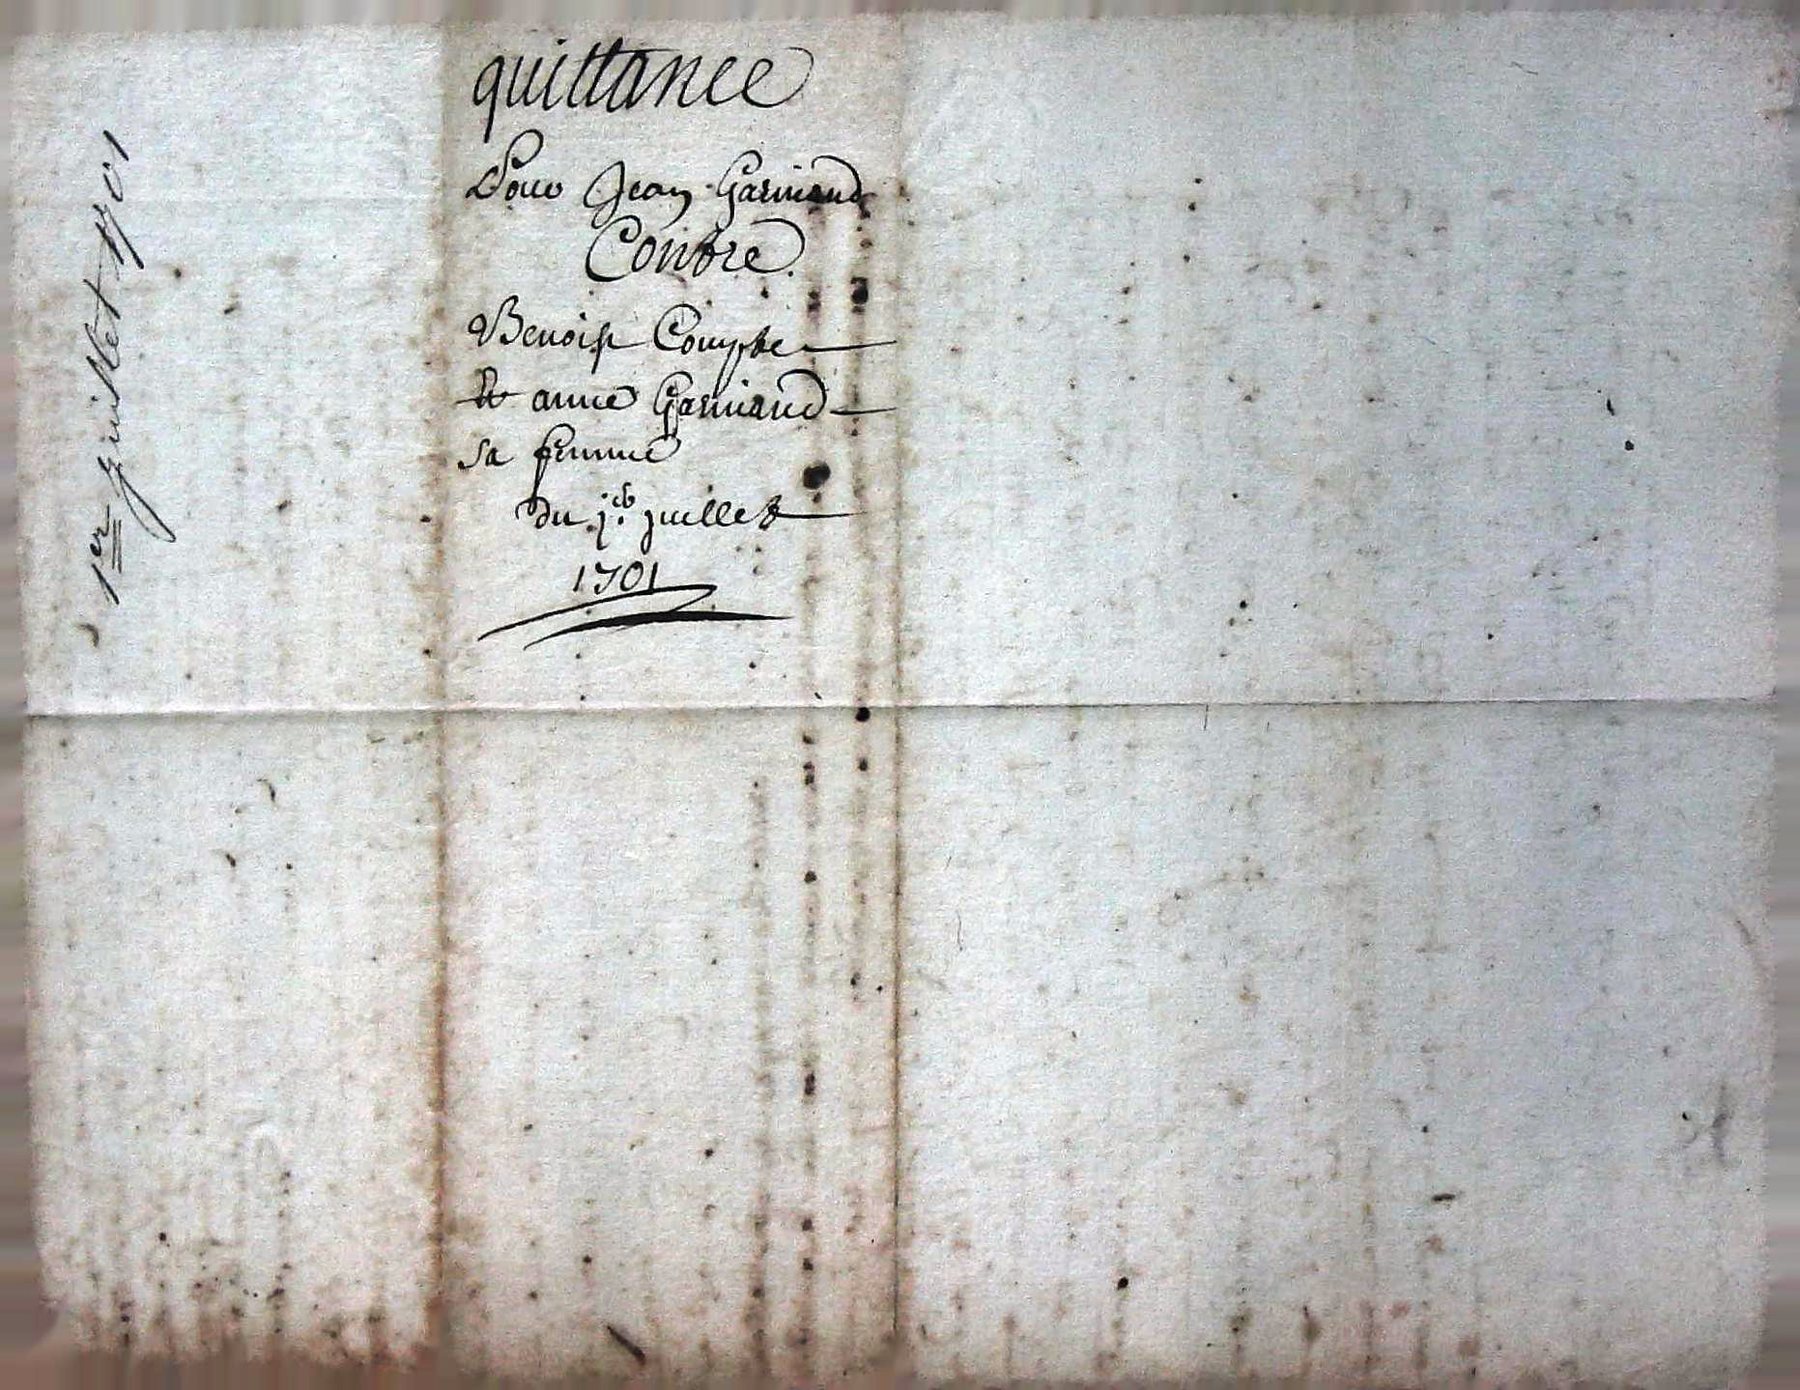 quittance
Pour Jean Garmand
Contre
Benoist Compte
et anne Garmand
sa femme
du j.er juillet
1701
1er juillet 1701